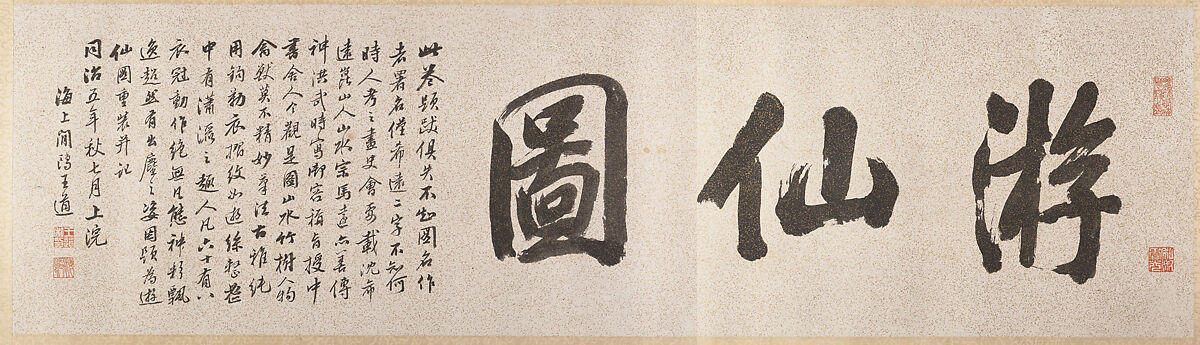 游仙圖
此卷題跋俱失不知圖名作
者署名僅希遠二字不知何
時人考之畫史會要載沈希
遠崑山人山水宗馬遠亦善傳
神洪武時寫御容稱旨授中
書舍人今觀是圖山水竹樹人物
禽獸莫不精妙筆法古雅純
用鉤勒衣摺紋如遊絲愁苍
中有瀟灑之趣人凡六十有八
衣冠動作絕無凡態神彩飄
逸超然有出塵之姿因題為游
仙圖重裝并記
同治五年秋七月上浣
海上閒鷗王道